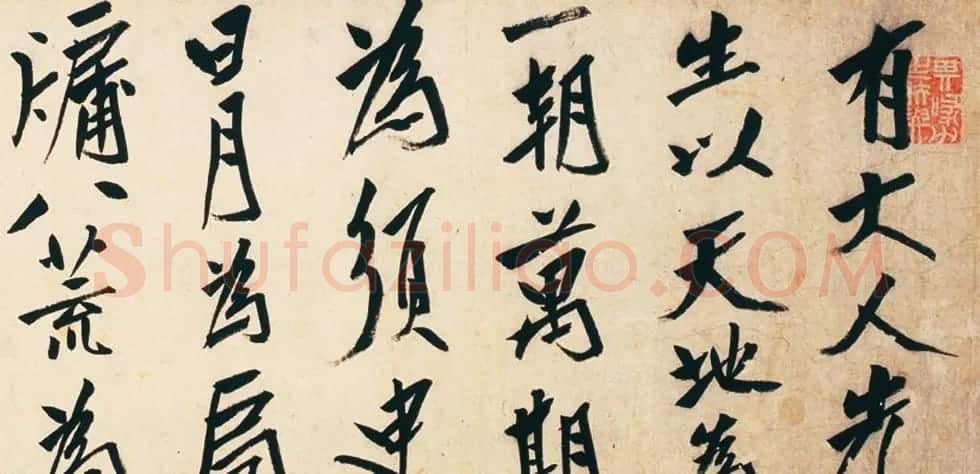 有大人先
生以天地為
一朝萬期
為須臾
日月為扃
牖八荒為
Shufaziliao.COM